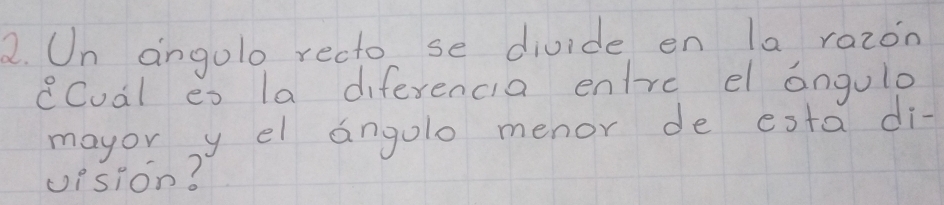 2. Un ángulo recto se divide en la razón
¿Cuál es la diferencia entre el ángulo
mayor y el ángulo menor de esta di-
visión?